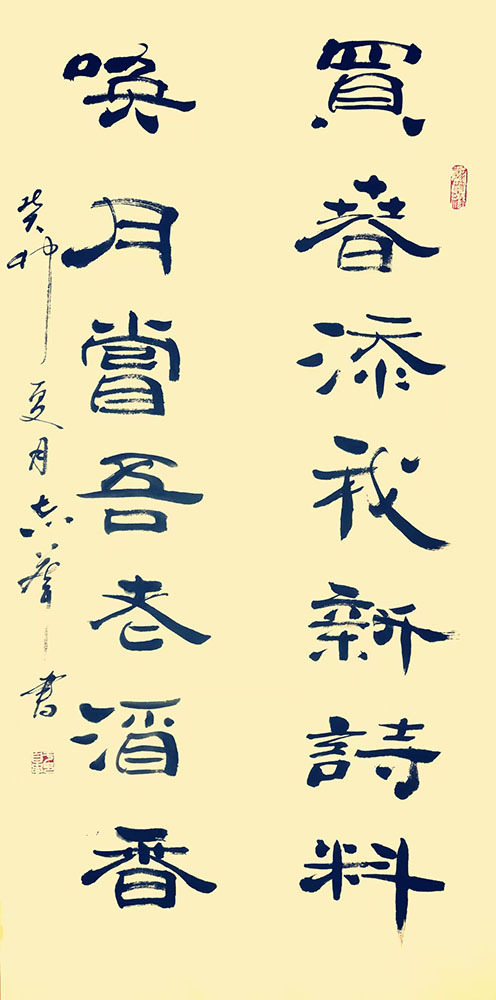 買春添我新詩料
喚月嘗吾老酒香
癸卯夏月志華書